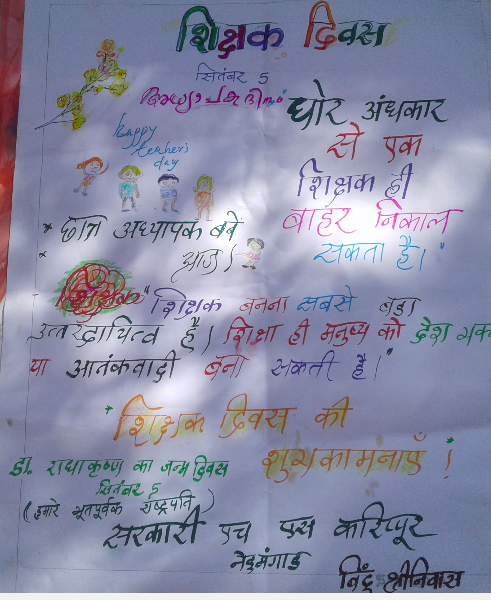 शिक्षक दिवस
सितंबर 5
happy
teacher's
day
घोर अंधकार
से एक
शिक्षक ही
बाहर निकाल
सकता है।"
* छात्र अध्यापक बनें
आज।
" शिक्षक बनना सबसे बड़ा
उत्तरदायित्व है। शिक्षा ही मनुष्य को देश भक्त
या आतंकवादी बना सकती है।"
शिक्षक दिवस की
शुभकामनाएँ !
डा. राधाकृष्ण का जन्म दिवस
सितंबर 5
(हमारे भूतपूर्वक राष्ट्रपति)
सरकारी एच एस करिप्पूर
नेडुमंगाड
श्रीनिवास